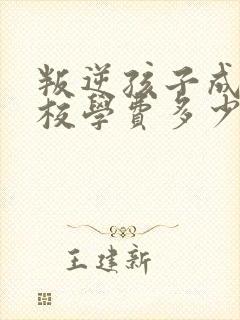 叛逆孩子成
校學費多少
王建新